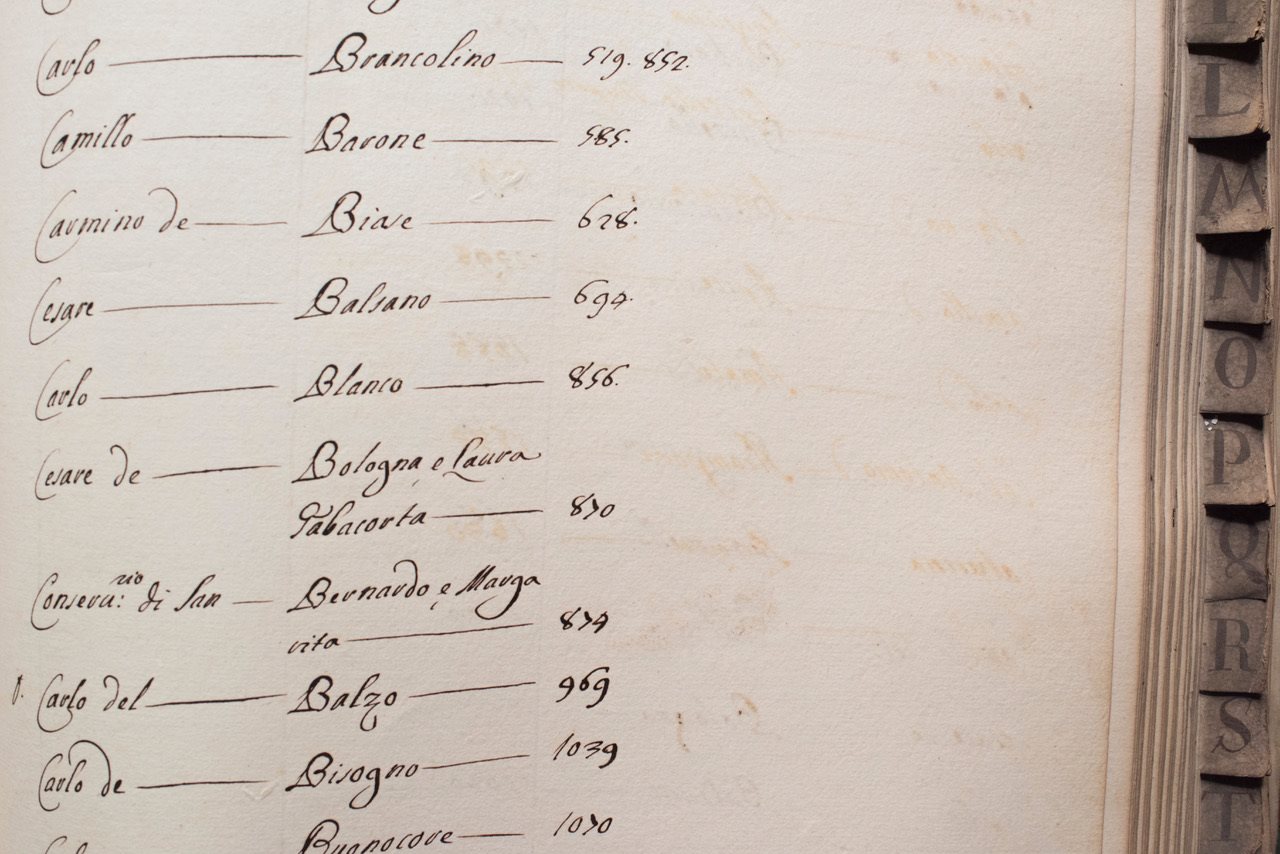 Carlo — Brancolino — 519. 852.
Camillo — Barone — 585.
Carmino de — Biase — 628.
Cesare — Balsano — 694.
Carlo — Blanco — 856.
Cesare de — Bologna, e Laura
Gabacorta — 870
Conseru:rio di San — Bernardo e Marga
rita — 874
Carlo del — Balzo — 969
Carlo de — Bisogno — 1039
Buonocore — 1070
L
M
N
O
P
Q
R
S
T